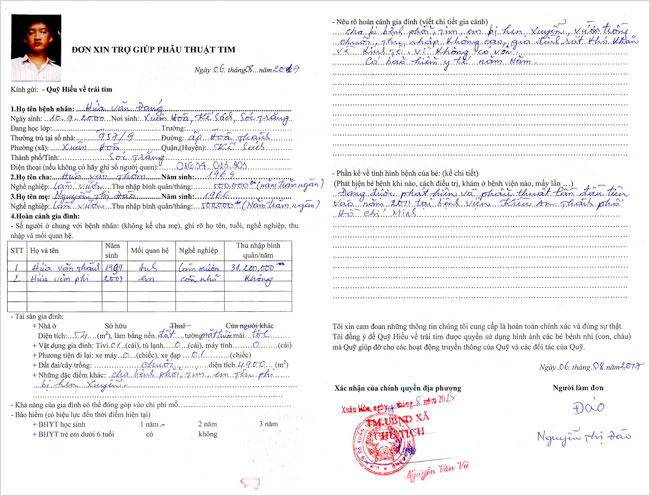 ĐƠN XIN TRỢ GIÚP PHẪU THUẬT TIM
Ngày 06 tháng 08 năm 2019
Kính gửi: - Quỹ Hiểu về trái tim
1.Họ tên bệnh nhân: Hứa Văn Đang
Ngày sinh: 10.9.2000 Nơi sinh: Xuân Hoà, Kế Sách, Sóc Trăng
Đang học lớp: Trường:
Thường trú tại số nhà: 957/9 Đường: ấp Hoà Thạnh
Phường (xã): Xuân Hoà Quận,(Huyện): Kế Sách
Thành phố/Tỉnh: Sóc Trăng
Điện thoại (nếu không có hãy ghi số người quen):
2.Họ tên cha: Hứa Văn Năm sinh: 1969
Nghề nghiệp: Làm vườn Thu nhập bình quân/tháng: 500.000đ (năm trăm ngàn)
3.Họ tên mẹ: Nguyễn Thị Đào Năm sinh: 1966
Nghề nghiệp: Làm vườn Thu nhập bình quân/tháng: 500.000đ (Năm trăm ngàn)
4.Hoàn cảnh gia đình:
- Số người ở chung với bệnh nhân: (không kể cha mẹ), ghi rõ họ tên, tuổi, nghề nghiệp, thu
nhập và mối quan hệ.
STT Họ và tên Năm sinh Mối quan hệ Nghề nghiệp Thu nhập bình quân/năm
1 Hứa Văn Anh Làm mướn 31.200.000
2 Hứa Văn Phi 2009 em còn nhỏ Không
- Tài sản gia đình:
+ Nhà ở Sở hữu Thuê Của người khác
Diện tích: 54 (m2), làm bằng nền đất tường mái tol
+ Vật dụng gia đình: Tivi 01 (cái), tủ lạnh 0 (cái), máy tính 0 (cái)
+ Phương tiện đi lại: xe máy 0 (chiếc), xe đạp 01 (chiếc)
+ Đất đai/cây trồng: chuối, diện tích 4.900 (m2)
+ Những đặc điểm khác: cha bệnh phổi, tim, em tên phi
bị hen xuyễn.
- Khả năng của gia đình có thể đóng góp vào chi phí mổ
- Bảo hiểm (có hiệu lực đến thời điểm hiện tại)
+ BHYT học sinh 1 năm 2 năm 3 năm
+ BHYT trẻ em dưới 6 tuổi có không
- Nêu rõ hoàn cảnh gia đình (viết chi tiết gia cảnh)
cha bị bệnh phổi, tim, em bị hen xuyễn, vườn trồng
chuối, thu nhập không cao, gia đình rất khó khăn
về kinh tế, vì không có vốn
Có bảo hiểm y tế năm năm.
- Phần kể về tình hình bệnh của bé: (kể chi tiết)
(Phát hiện bé bệnh khi nào, cách điều trị, khám ở bệnh viện nào, mấy lần …)
Đang được phát hiện và phẫu thuật lần đầu tiên
vào năm 2011 tại bệnh viện An thành phố
Hồ Chí Minh.
Tôi xin cam đoan những thông tin chúng tôi cung cấp là hoàn toàn chính xác và đúng sự thật.
Tôi đồng ý để Quỹ Hiểu về trái tim được quyền sử dụng hình ảnh các bé bệnh nhi (con, cháu)
mà Quỹ giúp đỡ cho các hoạt động truyền thông của Quỹ và các đối tác của Quỹ.
Ngày 06 tháng 08 năm 2017
Xác nhận của chính quyền địa phương Người làm đơn
Xuân Hòa, ngày tháng 8 năm
TM.UBND XÃ
CHỦ TỊCH
Nguyễn Văn Vũ
Đào
Nguyễn Thị Đào